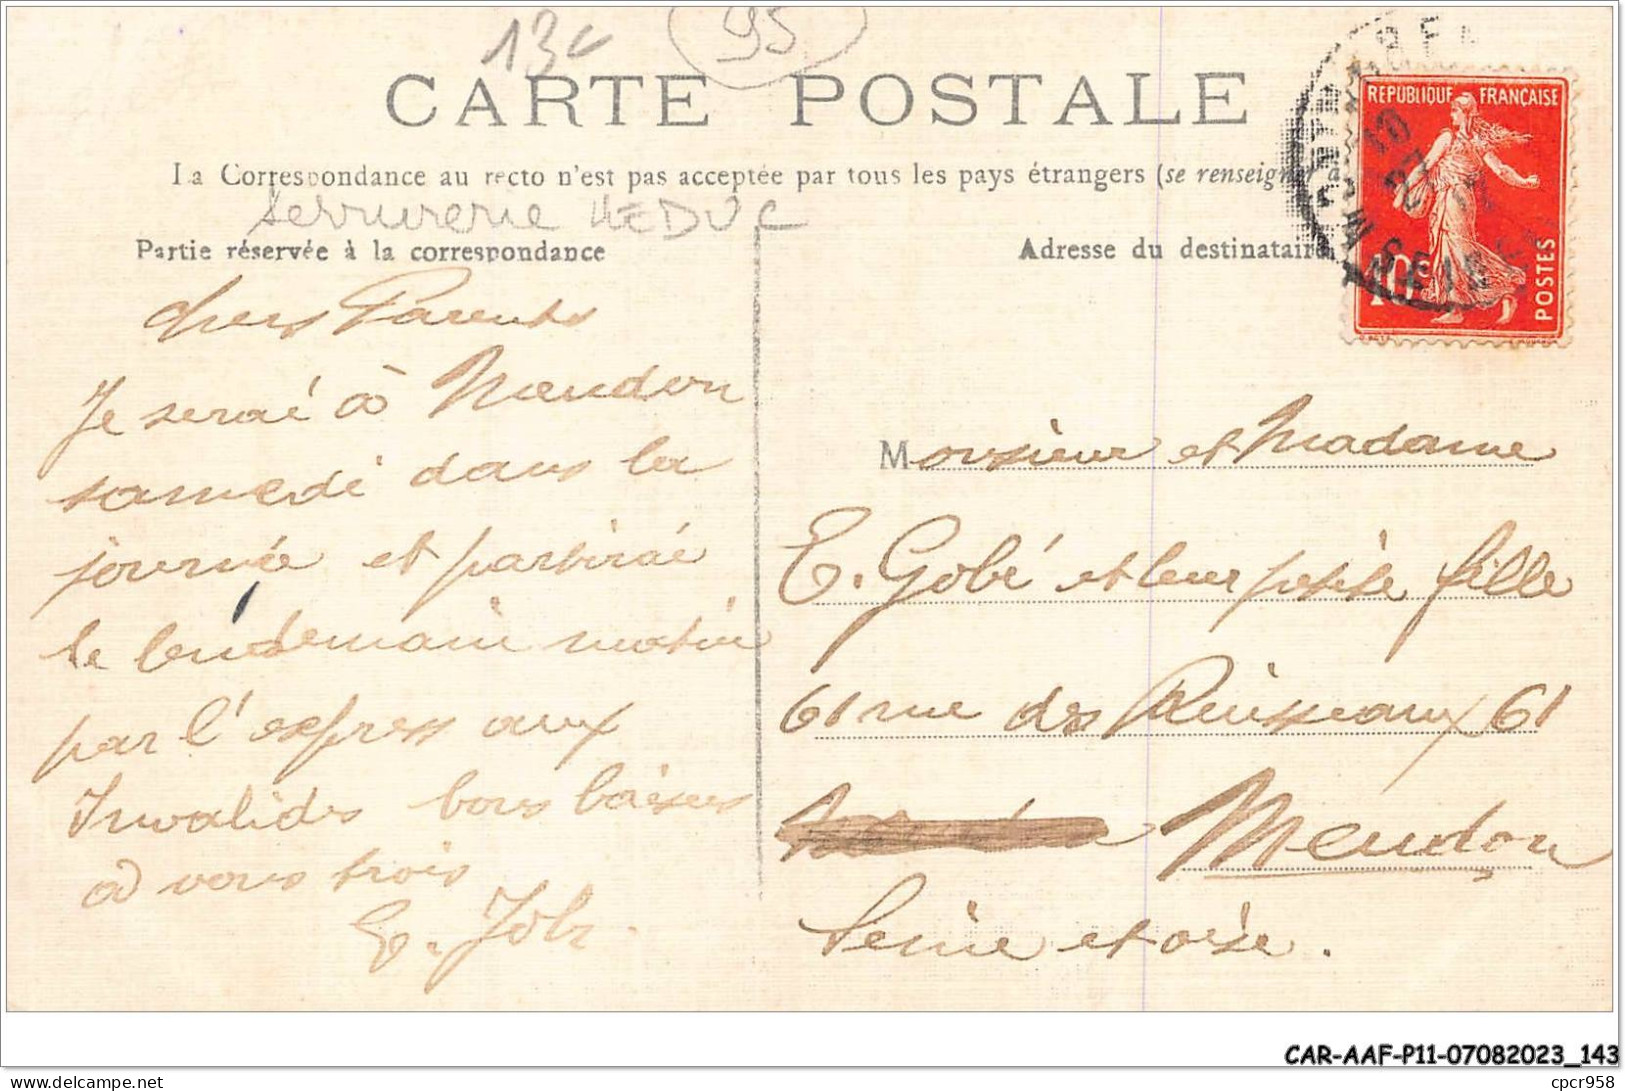 13€
95
CARTE POSTALE
La Correspondance au recto n'est pas acceptée par tous les pays étrangers (se renseigner à
Serrurerie HEDUC
Partie réservée à la correspondance
chers Parents
Je seraé à Meudon
samedi dans la
journée et partiraé
le lendemain matin
par l'express aux
Invalides bons baisers
à vous trois
Adresse du destinataire
RÉPUBLIQUE FRANÇAISE
10c
POSTES
Monsieur et Madame
E. Gobé et leur petite fille
61 rue des Ruisseaux 61
Meudon
Seine et oise.
CAR-AAF-P11-07082023_143
delcampe.net
cpcr958